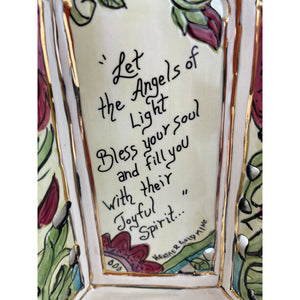 "Let
the Angels of
Light
Bless your soul
and fill you
with their
Joyful "
Spirit...